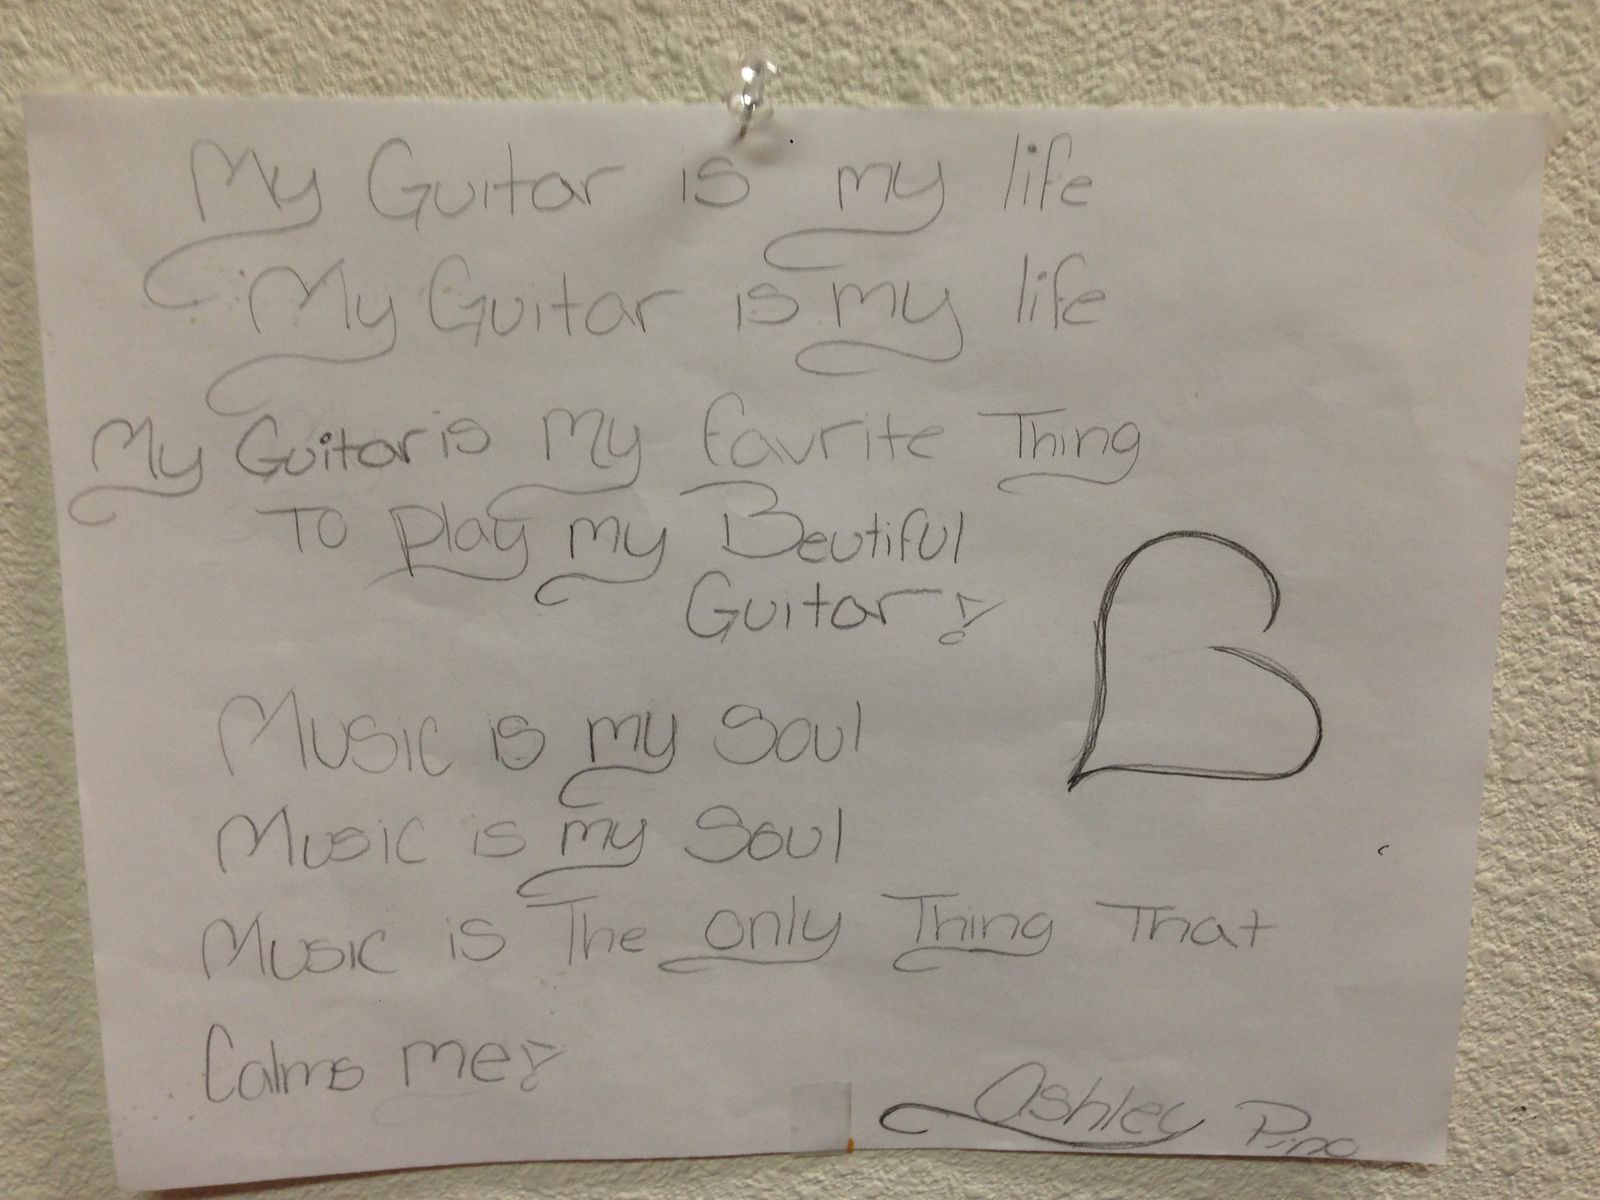 My Guitar is my life
My Guitar is my life
My Guitar is My favrite Thing
To play my Beutiful
Guitar!
Music is my Soul
Music is my Soul
Music is The only Thing That
Calms me!
Ashley Pino